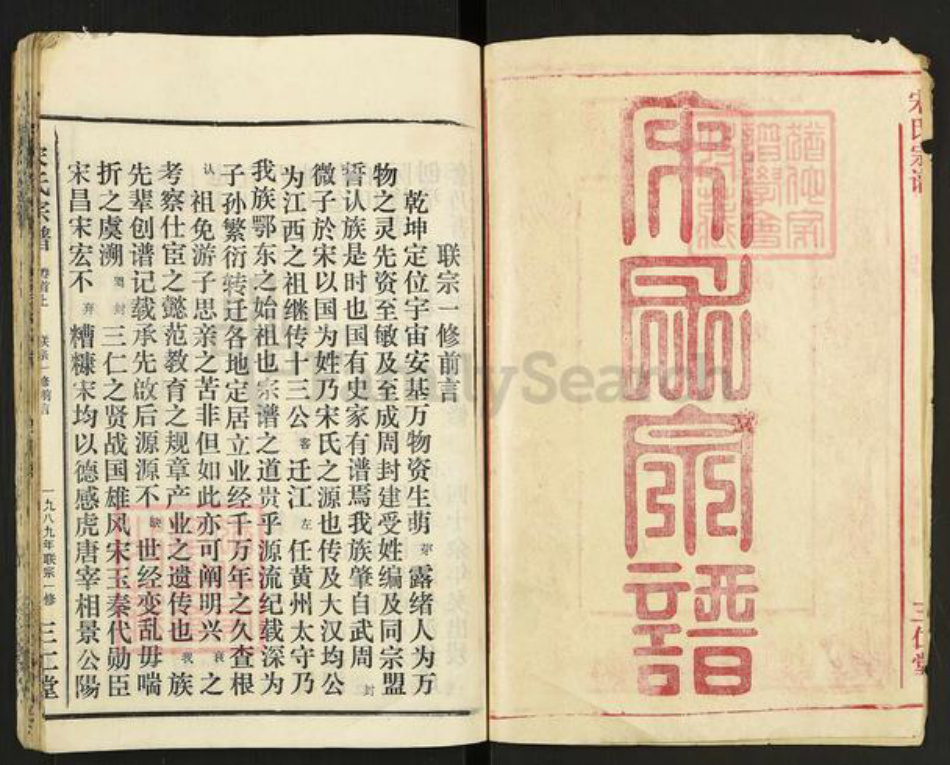 宋氏宗谱
三仁堂
宋氏宗譜
联宗一修前言
乾坤定位宇宙安基万物资生萌芽露绪人为万
物之灵先资至敏及至成周封建受姓编及同宗盟
誓认族是时也国有史家有谱焉我族肇自武周封
微子於宋以国为姓乃宋氏之源也传及大汉均公
为江西之祖继传十三公客迁江左任黄州太守乃
我族鄂东之始祖也宗谱之道贵乎源流纪载深为
子孙繁衍转迁各地定居立业经千万年之久查根
认祖免游子思亲之苦非但如此亦可阐明兴衰之
考察仕宦之懿范教育之规章产业之遗传也我族
先辈创谱记载承先啟后源源不缺世经变乱毋喘
折之虞溯封三仁之贤战国雄风宋玉秦代勋臣
宋昌宋宏不弃糟糠宋均以德感虎唐宰相景公陽
宋氏宗谱 卷首上 联宗一修前言 一九八九年联宗一修 三仁堂
FamilySearch